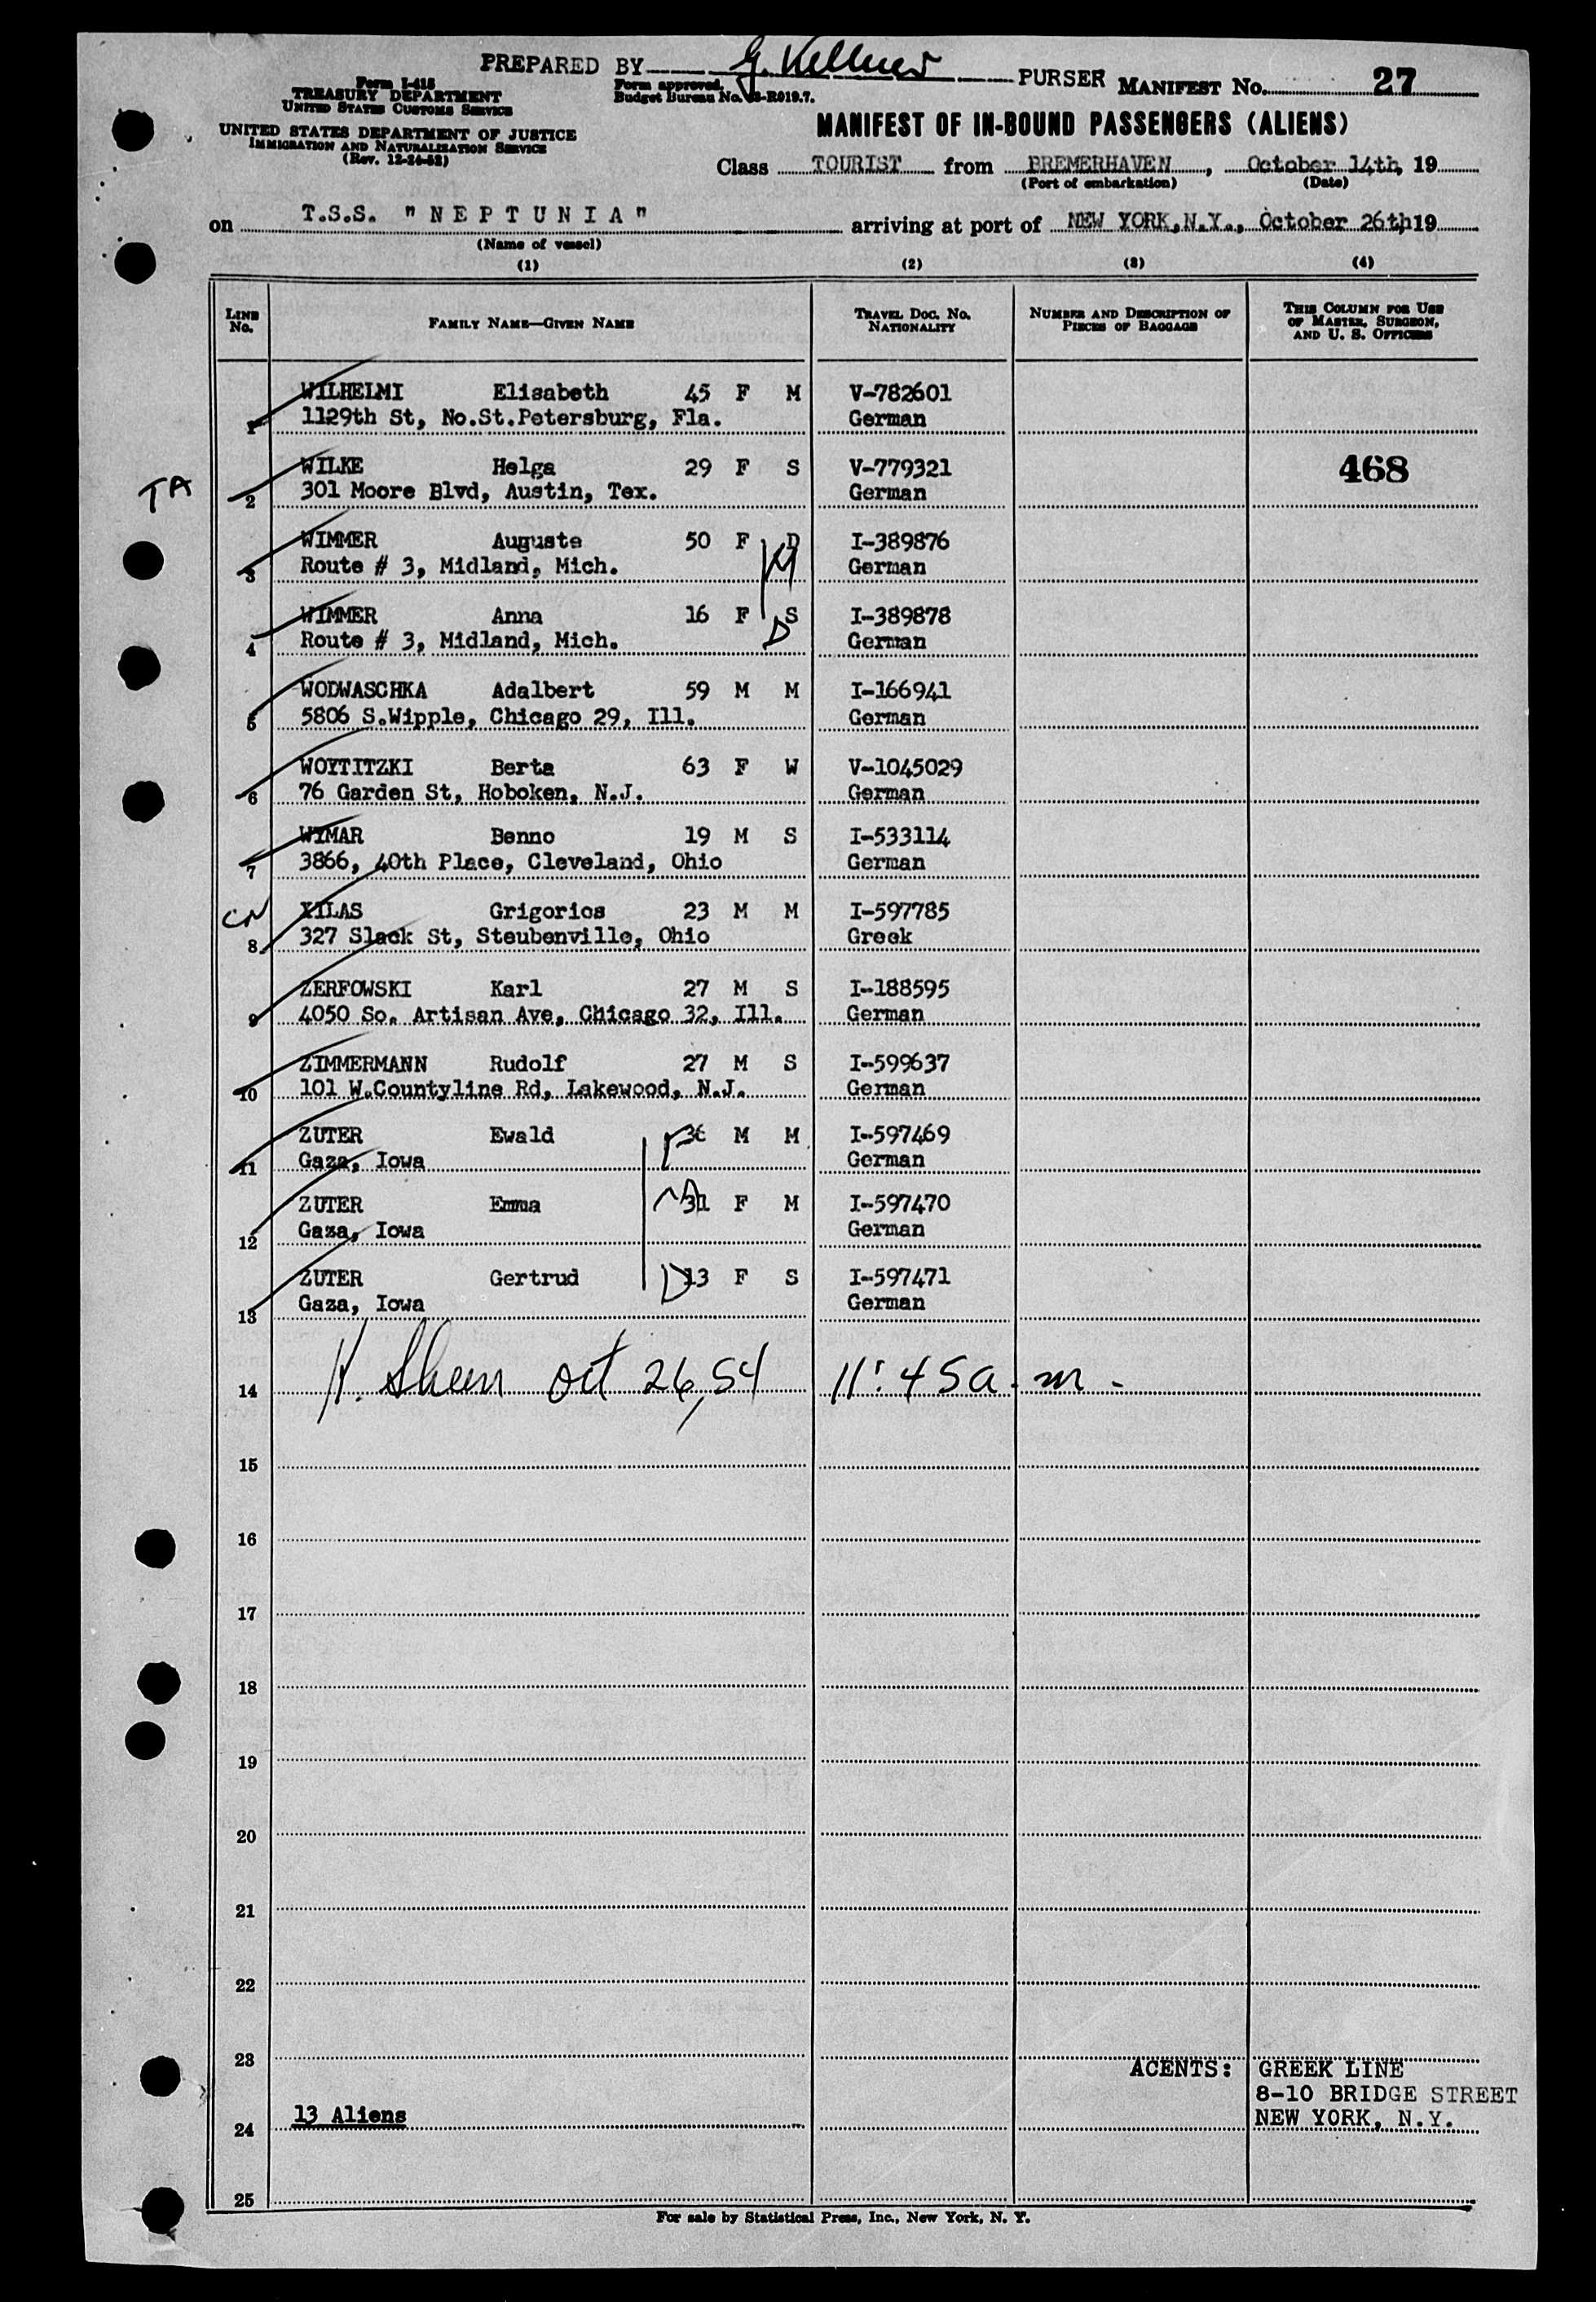 PREPARED BY G. Kellner PURSER MANIFEST No. 27
Form I-415
TREASURY DEPARTMENT
UNITED STATES CUSTOMS SERVICE
Form approved.
Budget Bureau No. 43-R019.7.
UNITED STATES DEPARTMENT OF JUSTICE
IMMIGRATION AND NATURALIZATION SERVICE
(Rev. 12-24-52)
MANIFEST OF IN-BOUND PASSENGERS (ALIENS)
Class TOURIST from BREMERHAVEN, October 14th, 19
(Port of embarkation) (Date)
on T.S.S. "NEPTUNIA" arriving at port of NEW YORK, N.Y., October 26th, 19
(Name of vessel)
(1) (2) (3) (4)
LINE No. FAMILY NAME—GIVEN NAME TRAVEL DOC. NO. NATIONALITY NUMBER AND DESCRIPTION OF PIECES OF BAGGAGE THIS COLUMN FOR USE OF MASTER, SURGEON, AND U. S. OFFICERS
WILHELMI Elisabeth 45 F M V-782601
1 1129th St, No.St.Petersburg, Fla. German
WILKE Helga 29 F S V-779321 468
TA 2 301 Moore Blvd, Austin, Tex. German
WIMMER Auguste 50 F D M I-389876
3 Route # 3, Midland, Mich. German
WIMMER Anna 16 F S D I-389878
4 Route # 3, Midland, Mich. German
WODWASCHKA Adalbert 59 M M I-166941
5 5806 S.Wipple, Chicago 29, Ill. German
WOYTITZKI Berta 63 F W V-1045029
6 76 Garden St, Hoboken, N.J. German
WYMAR Benno 19 M S I-533114
7 3866, 40th Place, Cleveland, Ohio German
CN XILAS Grigorios 23 M M I-597785
8 327 Slack St, Steubenville, Ohio Greek
ZERFOWSKI Karl 27 M S I-188595
9 4050 So. Artisan Ave, Chicago 32, Ill. German
ZIMMERMANN Rudolf 27 M S I-599637
10 101 W.Countyline Rd, Lakewood, N.J. German
ZUTER Ewald 36 M M I-597469
11 Gaza, Iowa German
ZUTER Emma 31 F M I-597470
12 Gaza, Iowa German
ZUTER Gertrud D 13 F S I-597471
13 Gaza, Iowa German
14 H. Sheen Oct 26, 54 11:45 a.m.
15
16
17
18
19
20
21
22
23 AGENTS: GREEK LINE
8-10 BRIDGE STREET
24 13 Aliens NEW YORK, N.Y.
25
For sale by Statistical Press, Inc., New York, N. Y.